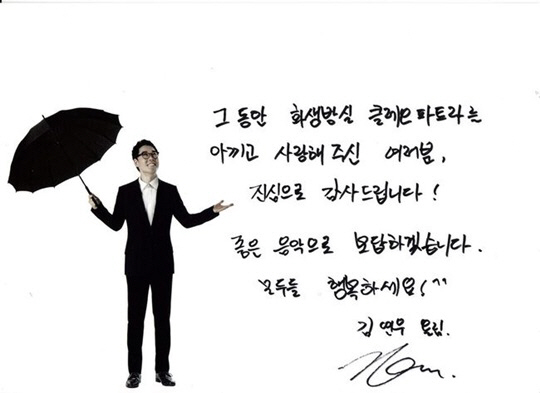 그 동안 화생방실 클레오파트라를
아끼고 사랑해 주신 여러분,
진심으로 감사드립니다!
좋은 음악으로 보답하겠습니다.
모두들 행복하세요!^^
김연우 올림.